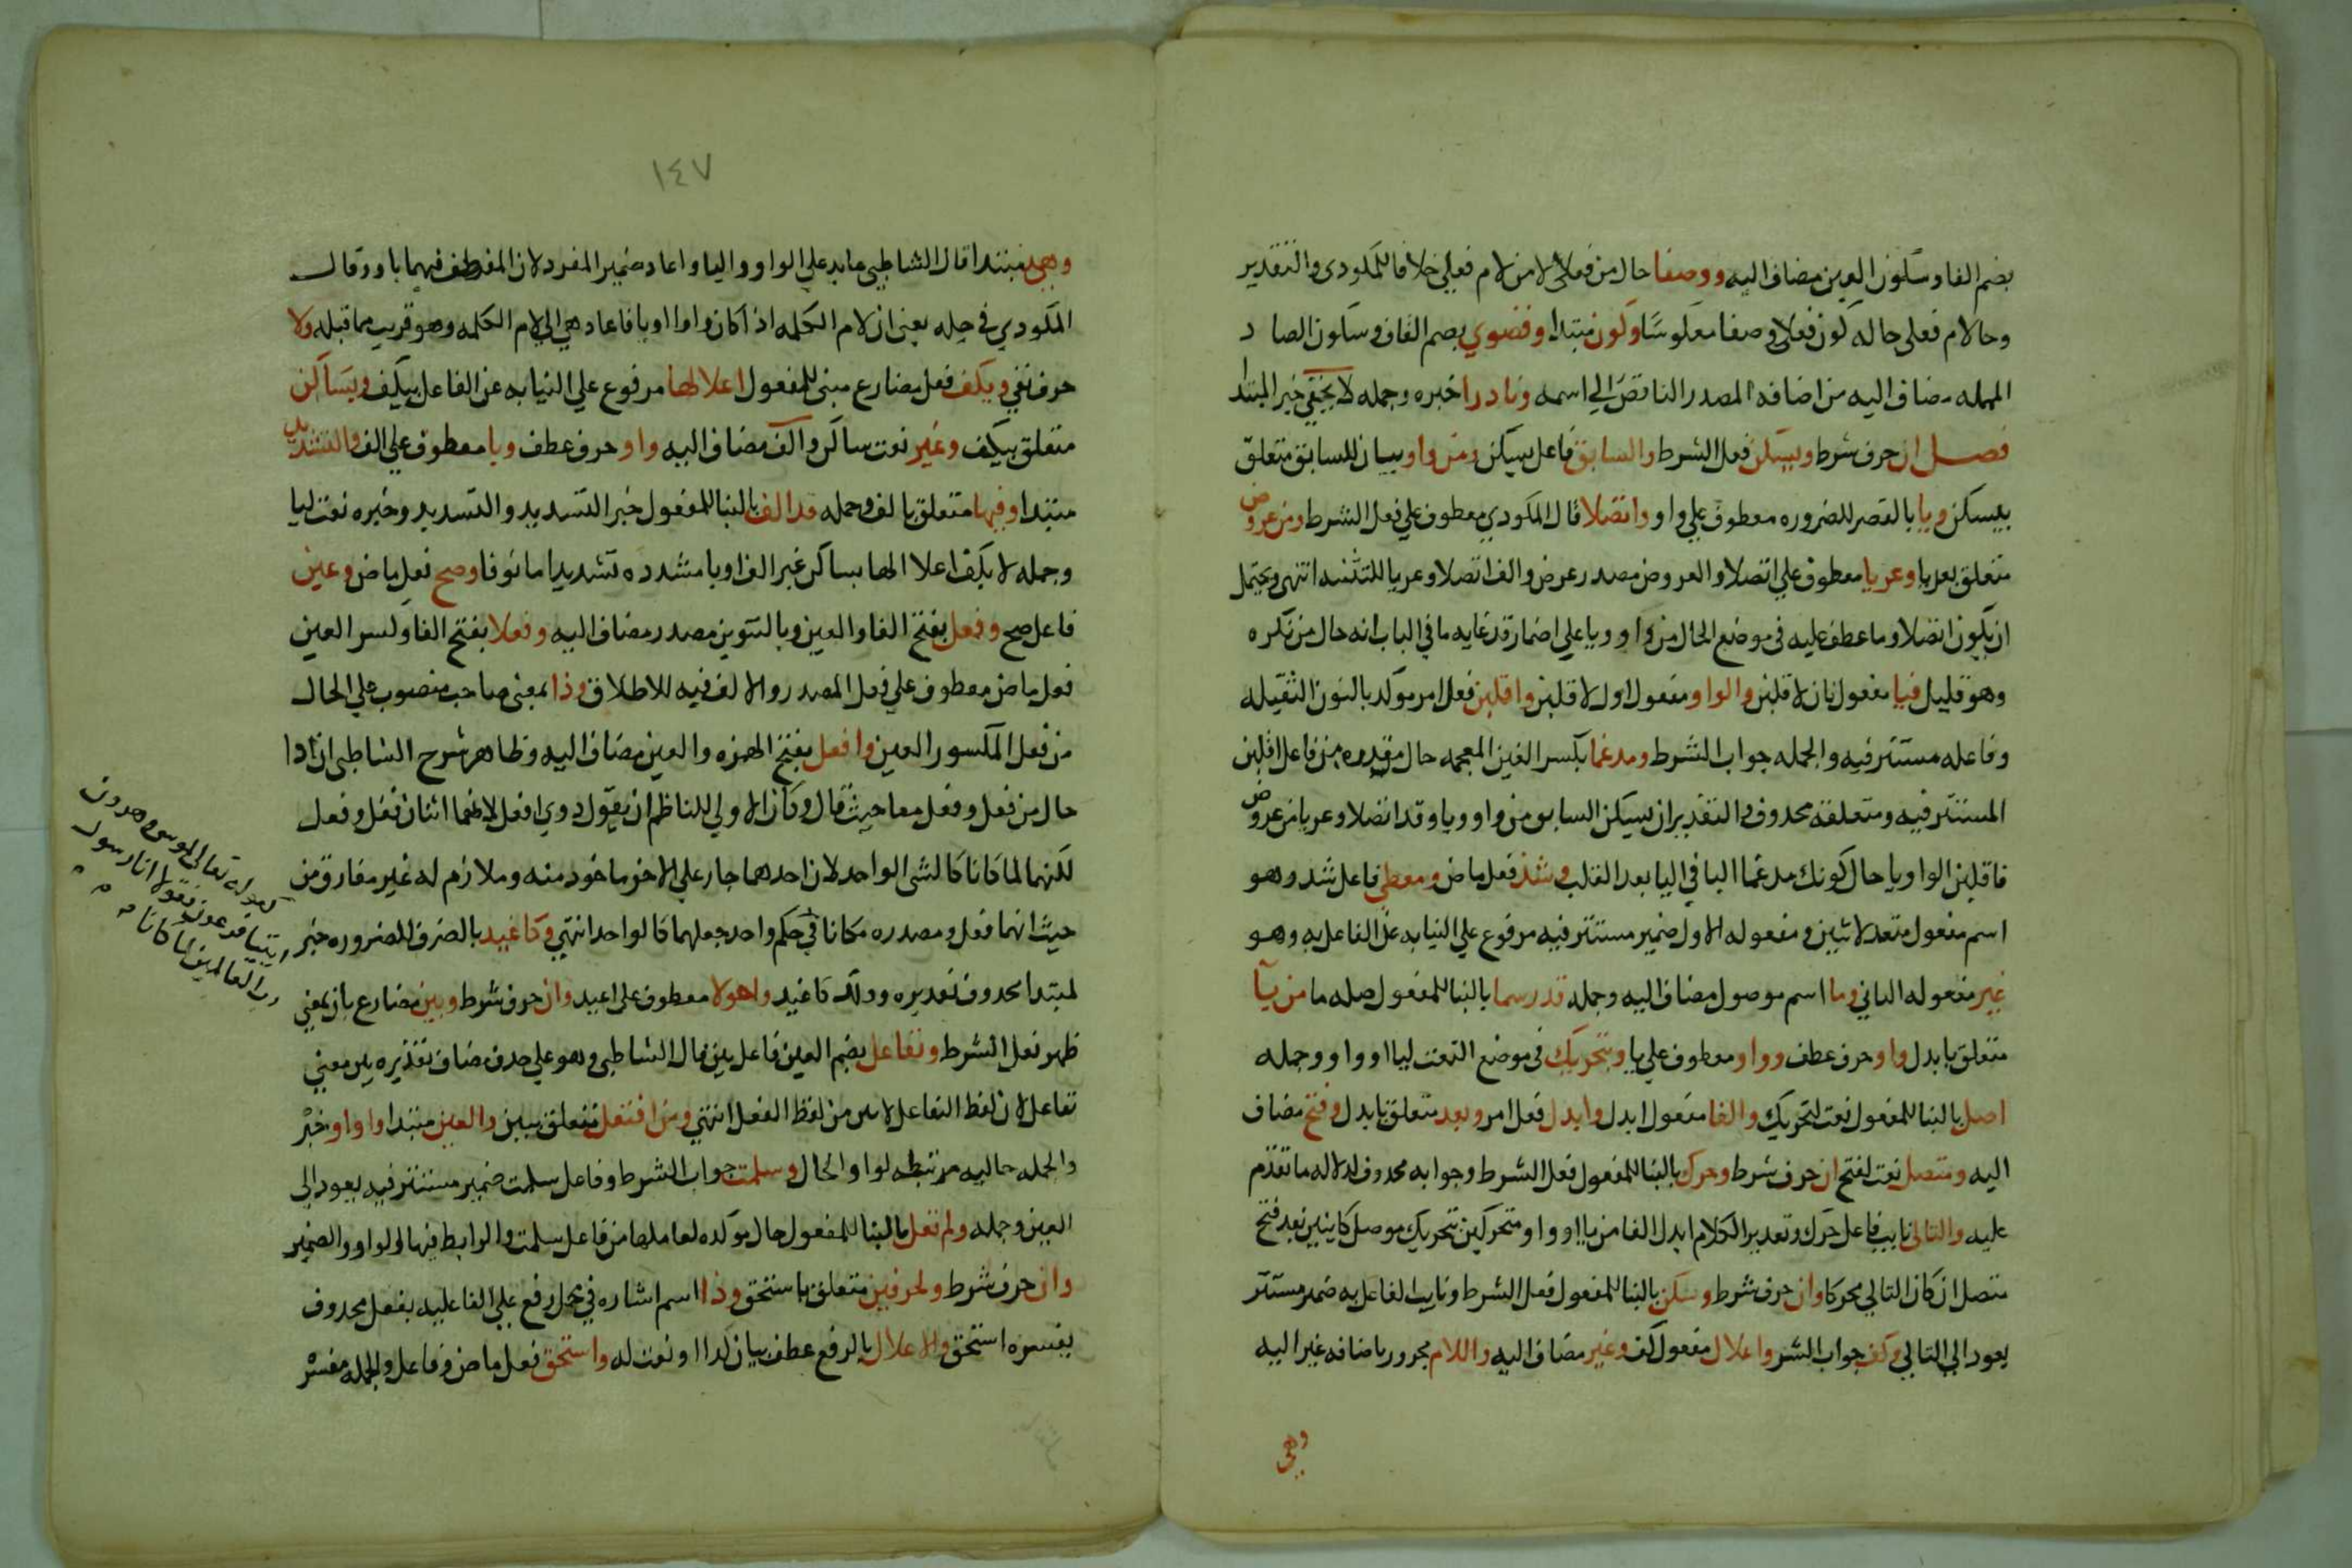 بضم الفا وسكون العين مضاف اليه ووصفا حال من فعلى لا من لام فعلى خلافا للمكودي والتقدير
وجا لام فعلى حاله كون فعلى وصفا معكوسًا وكون مبتدا وقصوي بضم القاف وسكون الصاد
المهمله مضاف اليه من اضافه المصدر الناقص الي اسمه ونادرا خبره وجمله لا يخفي خبر المبتدا
فصل ان حرف شرط ويسكن فعل الشرط والسابق فاعل يسكن ومن واو بيان للسابق متعلق
بيسكن ويا بالقصر للضروره معطوف علي واو واتصلا قال المكودي معطوف علي فعل الشرط ومن عروض
متعلق بعريا وعريا معطوف علي اتصلا والعروض مصدر عرض والف اتصلا وعريا للتثنيه انتهى ويحتمل
ان يكون اتصلا وما عطف عليه في موضع الحال من واو ويا علي اضمار قد غايه ما في الباب انه حال من نكره
وهو قليل فيا مفعول ثان لاقلبن والواو مفعول اول لاقلبن واقلبن فعل امر موكد بالنون الثقيله
وفاعله مستتر فيه والجمله جواب الشرط ومدغما بكسر الغين المعجمه حال مقدره من فاعل اقلبن
المستتر فيه ومتعلقه محذوف والتقدير ان يسكن السابق من واو ويا وقد اتصلا وعريا من عروض
فاقلبن الواو يا حال كونك مدغما اليا في اليا بعد القلب وشذ فعل ماض ومعطي فاعل شذ وهو
اسم مفعول متعد لاثنين ومفعوله الاول ضمير مستتر فيه مرفوع علي النيابه عن الفاعل به وهو
غير مفعوله الثاني وما اسم موصول مضاف اليه وجمله قد رسما بالبنا للمفعول صله ما من يآ
متعلق بابدل واو حرف عطف وواو معطوف علي يا وبتحريك في موضع النعت ليا او واو وجمله
اصل بالبنا للمفعول نعت لتحريك والفا مفعول ابدل وابدل فعل امر وبعد متعلق بابدل وفتح مضاف
اليه ومتصل نعت لفتح ان حرف شرط وحرك بالبنا للمفعول فعل الشرط وجوابه محذوف لدلاله ما تقدم
عليه والتالي نايب فاعل حرك وتقدير الكلام ابدل الفا من يا او واو متحركين بتحريك موصل كاينين بعد فتح
متصل ان كان التالي محركا وان حرف شرط وسكن بالبنا للمفعول فعل الشرط ونايب الفاعل به ضمير مستتر
يعود الي التالي وكف جواب الشر واعلال مفعول كف وغير مضاف اليه واللام مجرور باضافه غير اليه
وهي
١٤٧
وهي مبتدا قال الشاطبي عايد علي الواو واليا واعاد ضمير المفرد لان العطف فيهما باو وقال
المكودي في حله يعني ان لام الكلمه اذا كان واوا او يا فاعاد هي الي لام الكلمه وهو قريب مما قبله ولا
حرف نفي ويكف فعل مضارع مبني للمفعول اعلالها مرفوع علي النيابه عن الفاعل بيكف وبساكن
متعلق بيكف وغير نعت ساكن والف مضاف اليه واو حرف عطف ويا معطوف علي الف والتشديد
مبتدا وفيها متعلق بالف وجمله قد الف بالبنا للمفعول خبر التشديد والتشديد وخبره نعت ليا
وجمله لا يكف اعلالها بساكن غير الف او يا مشدده تشديدا مالوفا وصح فعل ماض وعين
فاعل صح وفعل بفتح الفا والعين وبالتنوين مصدر مضاف اليه وفعلا بفتح الفا وكسر العين
فعل ماض معطوف علي فعل المصدر والالف فيه للاطلاق وذا بمعني صاحب منصوب علي الحال
من فعل المكسور العين وافعل بفتح الهمزه والعين مضاف اليه وظاهر شرح الشاطبي ان ذا
حال من فعل وفعل معا حيث قال وكان الاولي للناظم ان يقول ذوي افعل لانهما اثنان فعل وفعل
لكنهما لما كانا كالشي الواحد لان احدهما جار علي الاخر ماخوذ منه وملازم له غير مفارق من
حيث انهما فعل ومصدره مكانا في حكم واحد جعلهما كالواحد انتهي وكاغيد بالصرف للضروره خبر
لمبتدا محذوف تقديره وذلك كاغيد واحولا معطوف علي اغيد وان حرف شرط ويبن مضارع بان بمعني
ظهر فعل الشرط وتفاعل بضم العين فاعل يبن قال الشاطبي وهو علي حذف مضاف تقديره يبن معني
تفاعل لان لفظ التفاعل لا يبين من لفظ الفعل انتهي ومن افتعل متعلق بيبن والعين مبتدا واو او خبرْ
والجمله حاليه مرتبطه لواو الحال وسلمت جواب الشرط وفاعل سلمت ضمير مستتر فيه يعود الي
العين وجمله ولم تعل بالبنا للمفعول حال موكده لعاملها من فاعل سلمت والرابط فيها الواو والضمير
وان حرف شرط ولحرفين متعلق باستحق وذا اسم اشاره في محل رفع علي الفاعليه بفعل محذوف
يفسره استحق والاعلال بالرفع عطف بيان لذا او نعت له واستحق فعل ماض وفاعل والجمله مفسر
كقوله تعالي لموسي وهرون
ايتيا فرعون فقولا انا رسول
رب العالمين لما كانا